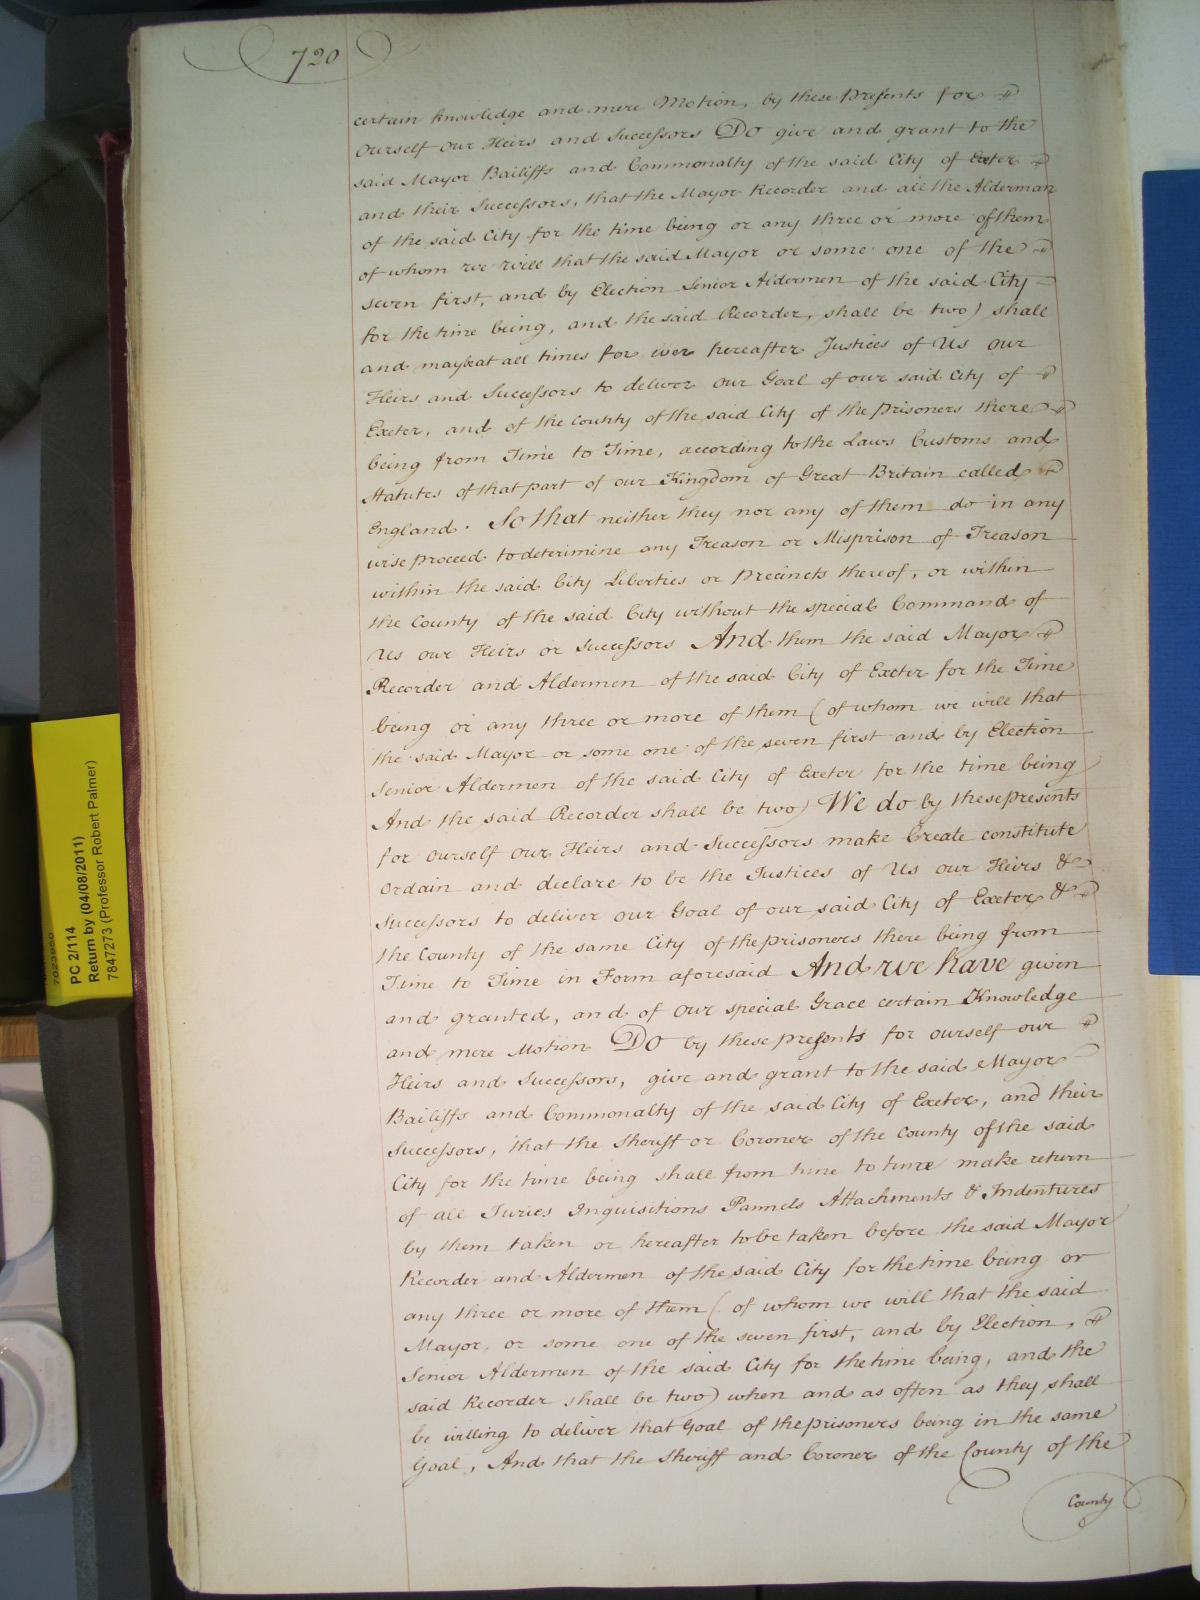 720
certain knowledge and mere Motion, by these Presents for
Ourself our Heirs and Successors Do give and grant to the
said Mayor Bailiffs and Commonalty of the said City of Exeter
and their Successors, that the Mayor Recorder and all the Alderman
of the said City for the time being or any three or more of them
of whom we will that the said Mayor or some one of the
seven first, and by Election Senior Aldermen of the said City
for the time being, and the said Recorder, shall be two) shall
and may be at all times for ever hereafter Justices of Us our
Heirs and Successors to deliver our Goal of our said City of
Exeter, and of the County of the said City of the prisoners there
being from Time to Time, according to the Laws Customs and
Statutes of that part of our Kingdom of Great Britain called
England. So that neither they nor any of them do in any
wise proceed to determine any Treason or Misprison of Treason
within the said City Liberties or Precincts thereof, or within
the County of the said City without the special Command of
Us our Heirs or Successors And them the said Mayor
Recorder and Aldermen of the said City of Exeter for the Time
being or any three or more of them (of whom we will that
the said Mayor or some one of the seven first and by Election
Senior Aldermen of the said City of Exeter for the time being
And the said Recorder shall be two) We do by these presents
for ourself our Heirs and Successors make Create constitute
Ordain and declare to be the Justices of Us our Heirs &
Successors to deliver our Goal of our said City of Exeter &
the County of the same City of the prisoners there being from
Time to Time in Form aforesaid And we have given
and granted, and of our special Grace certain Knowledge
and mere Motion Do by these presents for ourself our
Heirs and Successors, give and grant to the said Mayor
Bailiffs and Commonalty of the said City of Exeter, and their
Successors, that the Sheriff or Coroner of the County of the said
City for the time being shall from time to time make return
of all Juries Inquisitions Pannels Attachments & Indentures
by them taken or hereafter to be taken before the said Mayor
Recorder and Aldermen of the said City for the time being or
any three or more of them (of whom we will that the said
Mayor, or some one of the seven first, and by Election,
Senior Aldermen of the said City for the time being, and the
said Recorder shall be two) when and as often as they shall
be willing to deliver that Goal of the prisoners being in the same
Goal, And that the Sheriff and Coroner of the County of the
County
7023950
PC 2/114
Return by (04/08/2011)
7847273 (Professor Robert Palmer)